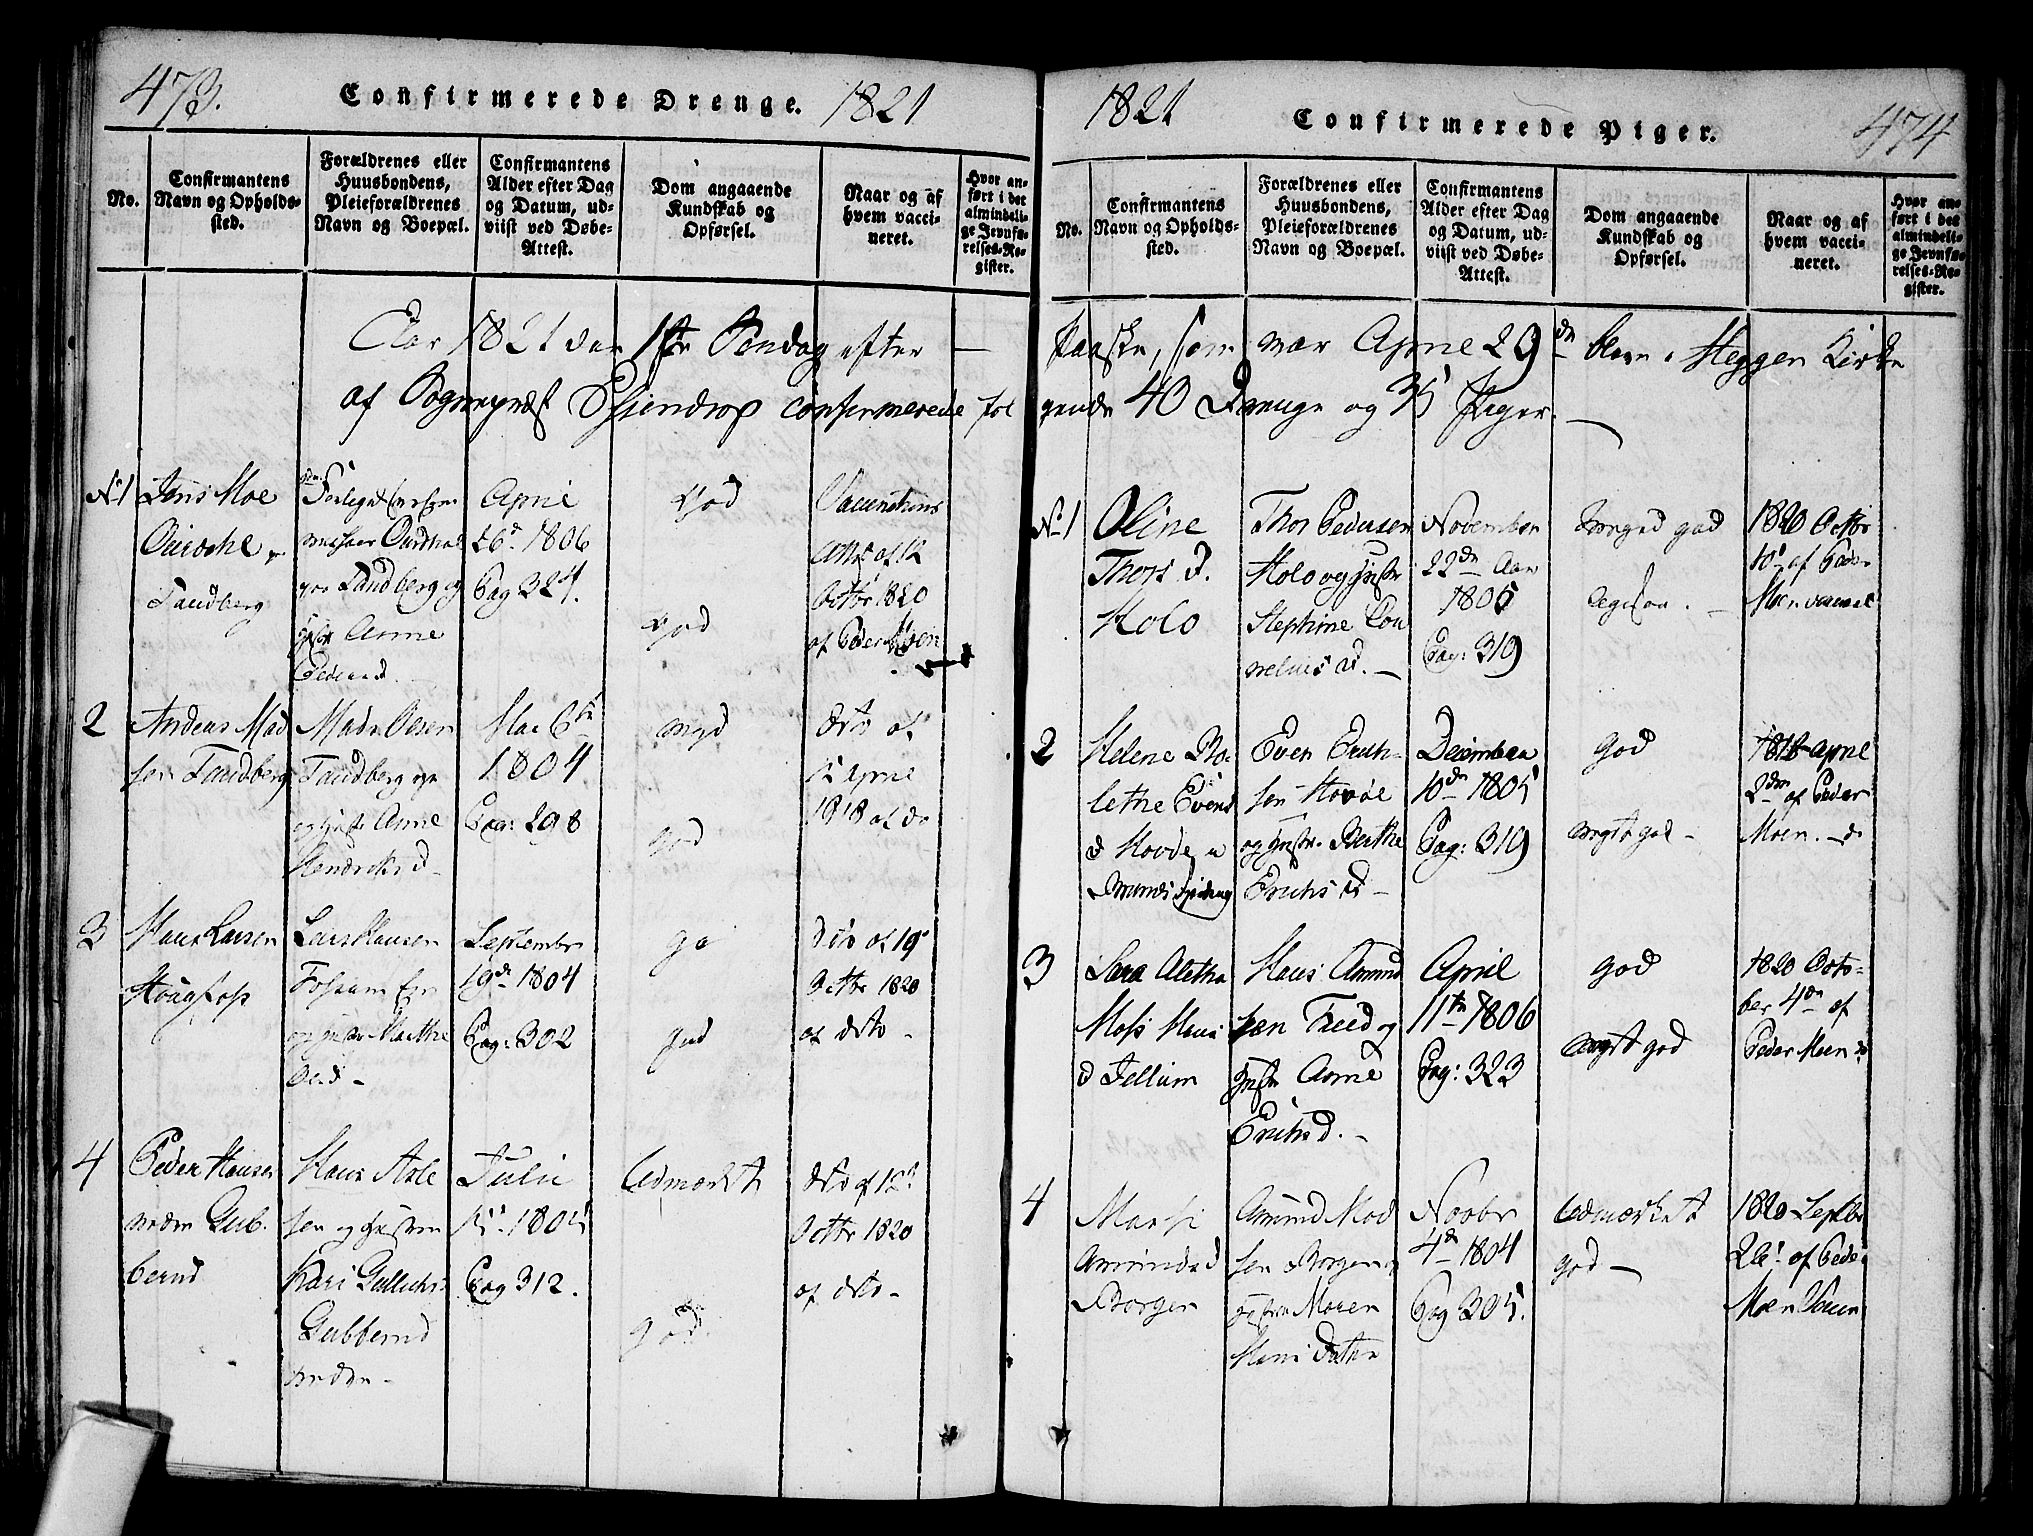 473.
Confirmerede Drenge. 1821
No.
Confirmantens
Navn og Opholds-
sted.
Forældrenes eller
Huusbondens,
Pleieforældrenes
Navn og Boepæl.
Confirmantens
Alder efter Dag
og Datum, ud-
viist ved Døbe-
Attest.
Dom angaaende
Kundskab og
Opførsel.
Naar og af
hvem vacci-
neret.
Hvor an-
ført i det
almindeli-
ge Jevnfø-
relses-Re-
gister.
Aar 1821 den 1ste Søndag efter
af Sogneprest confirmerede føl
No 1
Jens Moe
Tandberg
Tandberg og
Anne
April
26de 1806
Pag 324.
God
God
Vaccinations
Octbr 1820
af Peder Moen
2
Andreas Mad
sen Tandberg
Mads Olsen
Tandberg
og Hustr Anne
Hendriksd
Mai 6te
1804
Pag: 298
god
dito af
12 April
1818 af do
3
Hans Larsen
Hougfoss
Lars Hansen
Fossum
og Hustr Marthe
September
19de 1804
Pag: 302
god
dito af 19
Octbr 1820
af dito -
4
Peder Hansen
nedre Gub-
berud
Hans Axle
sen og Hustrue
Kari Gullichs-
Gubberud
nedre -
Julii
1805
Pag 312.
Udmærket
god.
dito af 12
Octbr 1820
af dito -
1821
Confirmerede Piger.
474
No.
Confirmantens
Navn og Opholds-
sted.
Forældrenes eller
Huusbondens,
Pleieforældrenes
Navn og Boepæl.
Confirmantens
Alder efter Dag
og Datum, ud-
viist ved Døbe-
Attest.
Dom angaaende
Kundskab og
Opførsel.
Naar og af
hvem vacci-
neret.
Hvor an-
ført i det
almindeli-
ge Jevnfø-
relses-Re-
gister.
Paaske, som var April 29de blev i Heggen Kirke
gende 40 Drenge og 35 Piger.
No 1
Oline
Thors d.
Holo
Thor Pedersen
Holo og Hustr
Stephine Cor
nelius d. -
November
22de Aar
1805
Pag: 319
god
1820 Octbr
af Peder
Moen
2
Helene Bo-
lethe Evens
d Hovde
Even Erich-
sen Hovde
og Hustr. Berthe
Erichs d -
December
10de 1805
Pag: 319
God
meget god -
1818 April
2den af Peder
Moen. - do
3
Sara Aletha
Moss Hans
d Tellum
Hans Amund
sen Treed og
Hustr Anne
Erichs d. -
April
11te 1806
Pag: 323
god
meget god
1820 Octo-
ber 4de af
Peder Moen do
4
Amundsd
Borgen
Amund Mad
sen Borgen
Hustrue Maren
Hans Dotter
Novbr
4de 1804
Pag 305.
Udmærket
god -
1820 Septbr
af Peder
Moen